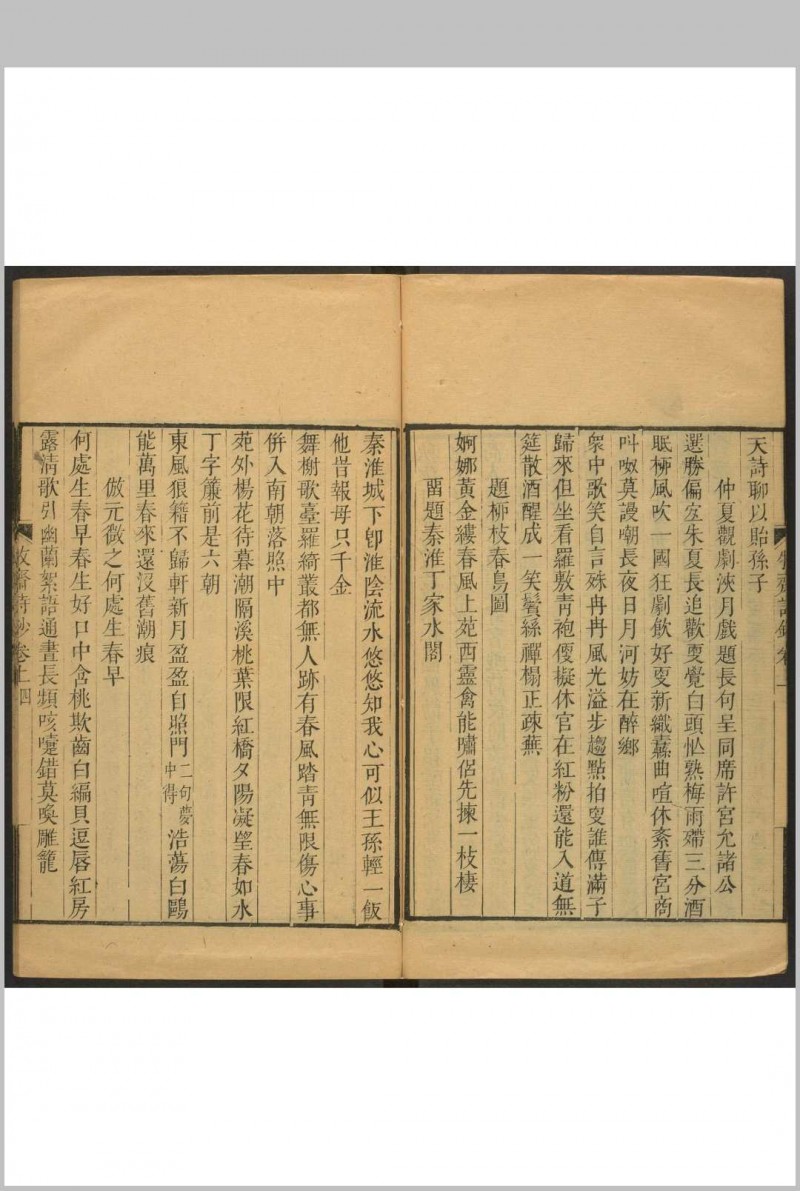 天詩聊以貽孫子
仲夏觀劇浹月戲題長句呈同席許宮允諸公
選勝偏宜朱夏長追歡更覺白頭忙熟梅雨殢三分酒
眠柳風吹一國狂劇飲好更新織纛曲喧休紊舊宮商
叫呶莫謾嘲長夜日月河妨在醉鄉
衆中歌笑自言殊冉冉風光溢步趨點拍更誰傳滿子
歸來但坐看羅敷青袍便擬休官在紅粉還能入道無
筵散酒醒成一笑鬢絲禪榻正疎蕪
題柳枝春鳥圖
婀娜黃金縷春風上苑西靈禽能嘯侶先揀一枝棲
畱題秦淮丁家水閣
秦淮城下卽淮陰流水悠悠知我心可似王孫輕一飯
他時報母只千金
舞榭歌臺羅綺叢都無人跡有春風踏青無限傷心事
併入南朝落照中
苑外楊花待暮潮隔溪桃葉限紅橋夕陽凝望春如水
丁字簾前是六朝
東風狼籍不歸軒新月盈盈自照門二句夢中得浩蕩白鷗
能萬里春來還沒舊潮痕
倣元微之何處生春早
何處生春早春生好口中含桃欺齒白編貝逗唇紅房
露清歌引幽蘭絮語通晝長頻咳嚏錯莫喚雕籠
牧齋詩鈔卷上四